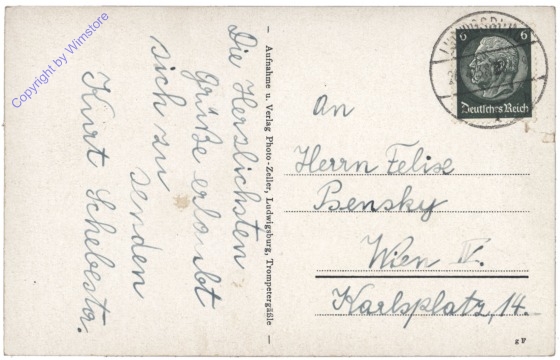 Copyright by Wimstore
Die Herzlichsten
Grüße erlaubt
sich zu
senden
Kurt Schebesta.
– Aufnahme u. Verlag Photo-Zeller, Ludwigsburg, Trompetergäßle –
6 6
Deutsches Reich
an
Herrn Felix
Bensky
Wien IV.
Karlsplatz, 14.